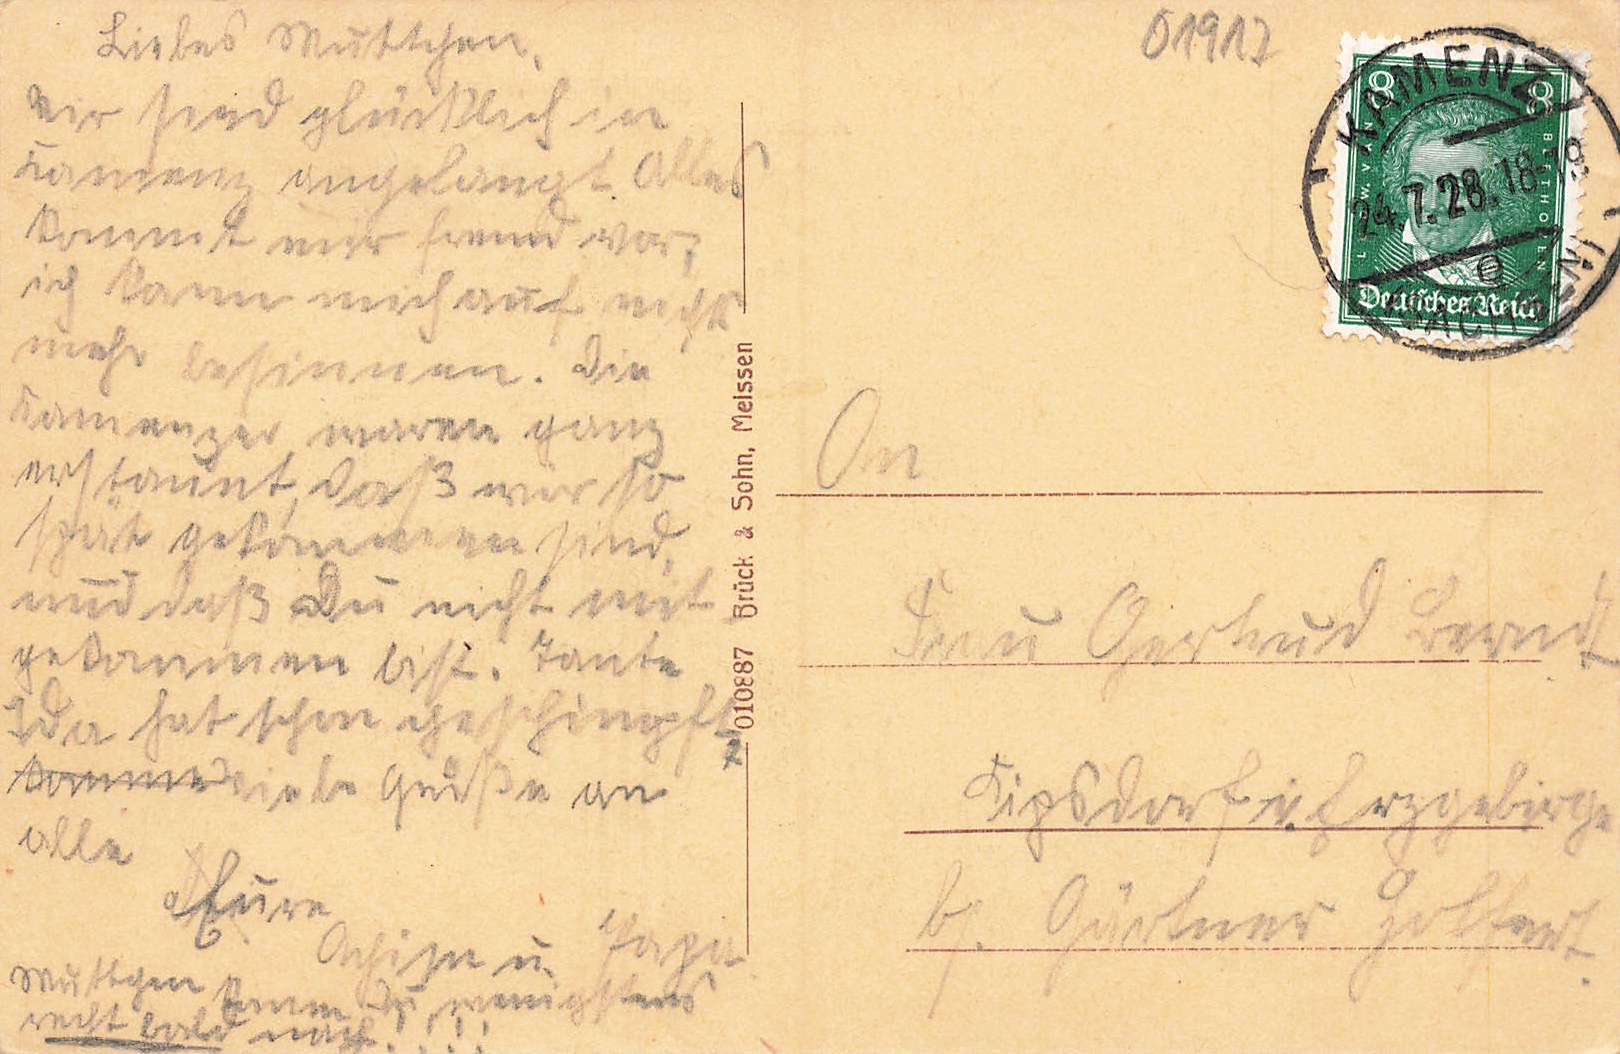 Liebes Muttchen,
wir sind glücklich in
Kamenz angelangt. Alles
kommt mir fremd vor,
ich kann mich auf nichts
mehr besinnen. Die
Kamenzer waren ganz
erstaunt, daß wir so
spät gekommen sind,
und daß Du nicht mit
gekommen bist. Tante
Ida hat schon geschimpft
komme viele Grüße an
alle
Eure
u. Papa.
Muttchen komm Du wenigstens
recht bald nach!!!!
010887 Brück & Sohn, Meissen
01917
8 8
BEETHOVEN
Deutsches Reich
KAMENZ
24.7.28.18-19
An
Frau Gertrud Berndt
Kipsdorf i. Erzgebirge
bei Gärtner